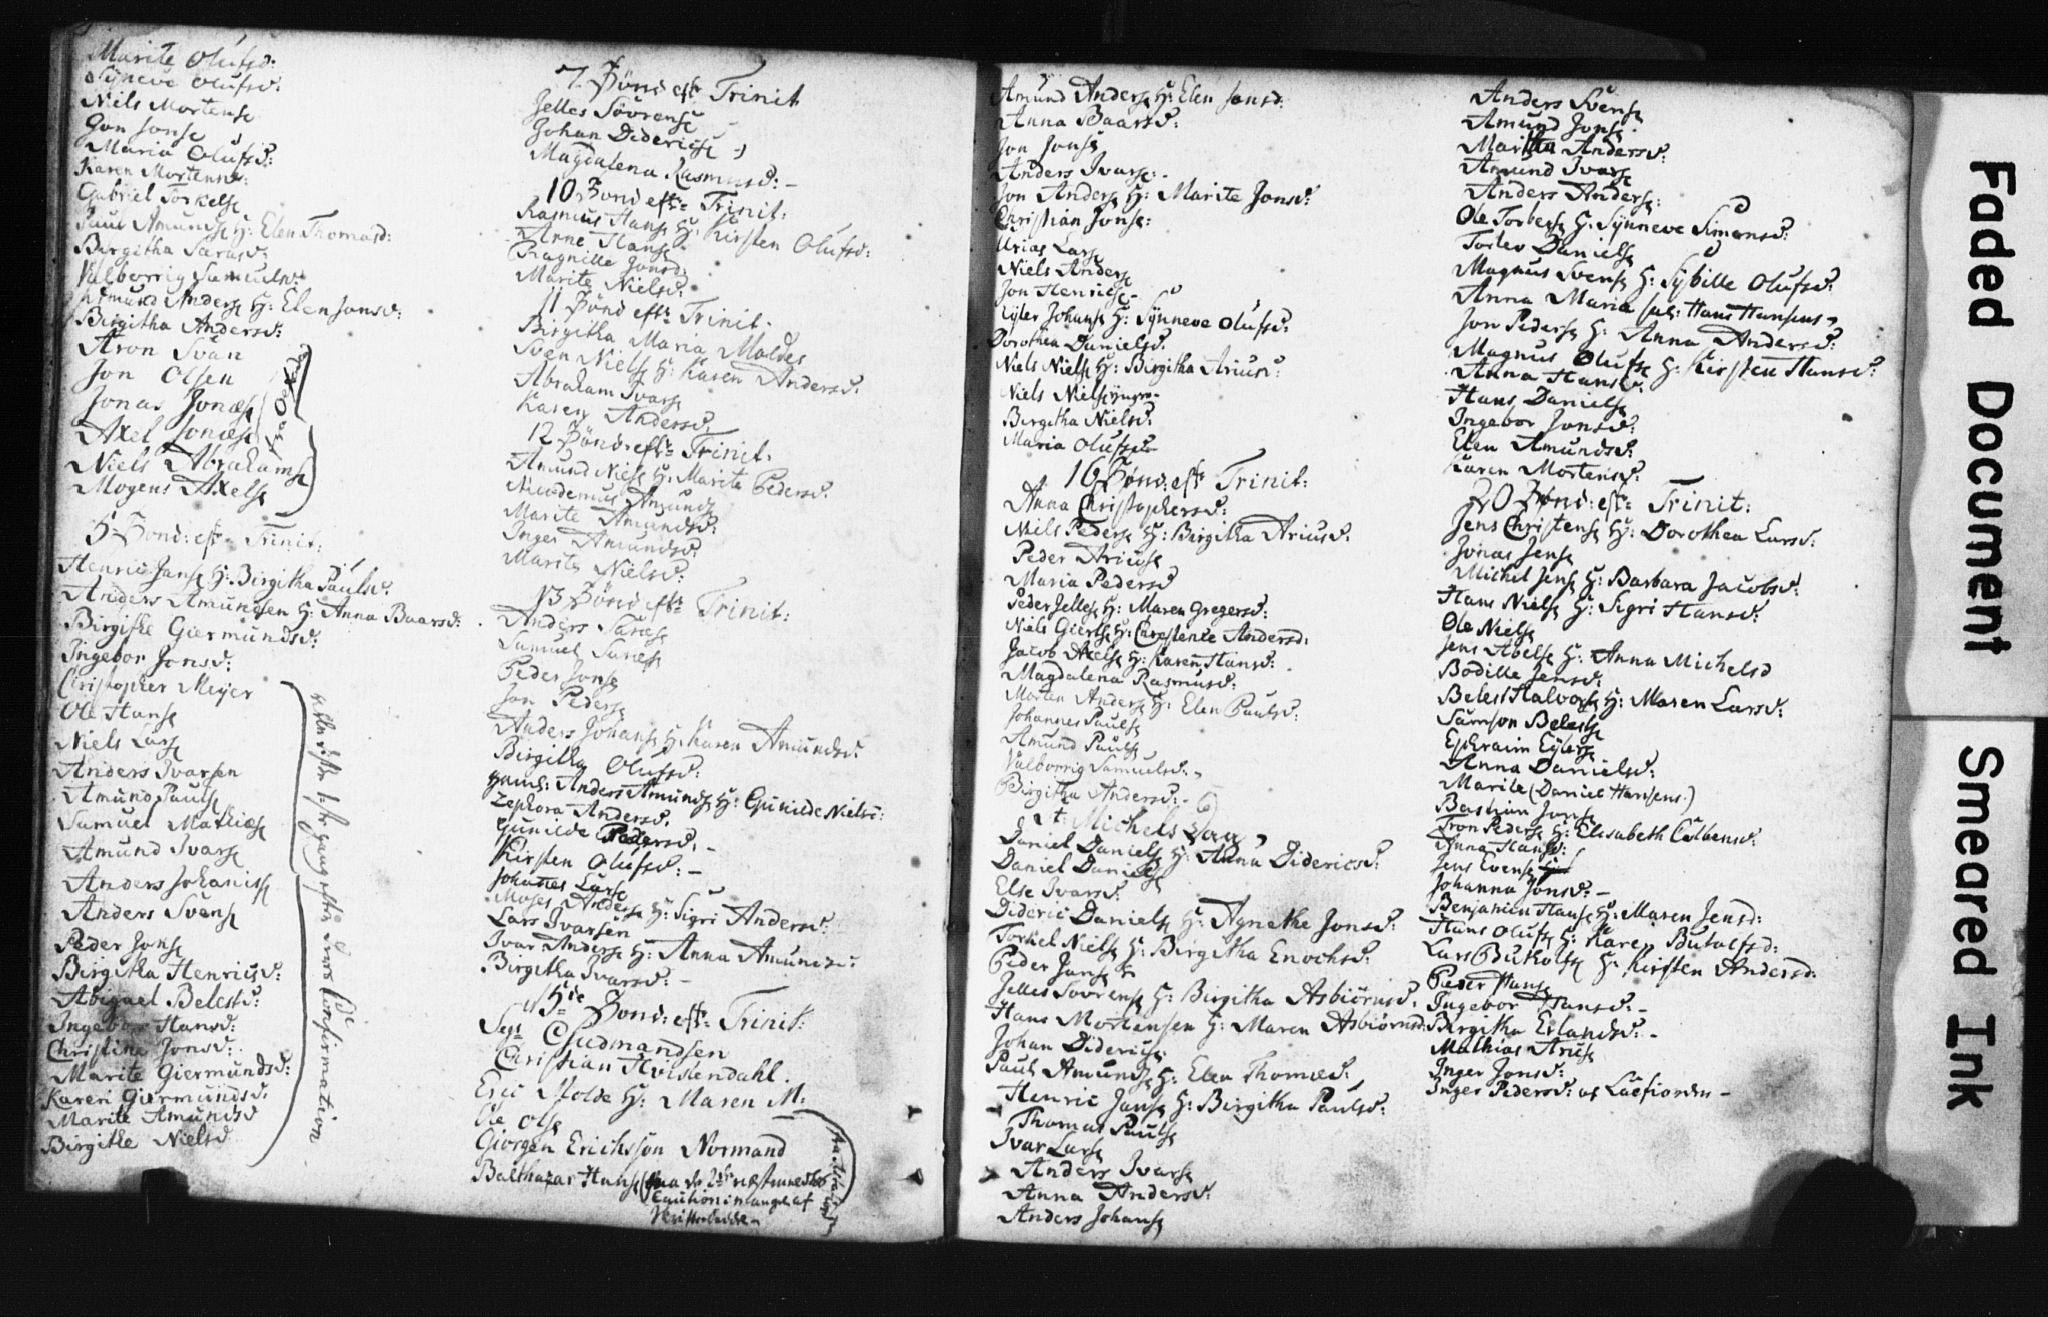 Marite Olufsd:
Synneve Olufsd:
Niels Mortense
Jon Jonse
Maria Olufsd:
Karen Mortensd:
Gabriel Torkelse
Paul Amundse H: Elen Thomasd:
Birgitha Sarasd:
Valborrig Samuelsd:
Amund Anderse H: Elen Jonsd:
Birgitha Andersd:
Aron Svan
Jon Olsen
Jonas Jonæse
Axel Jonæse
Niels Abrahamse
Mogens Axelse
5 Sönd: eft: Trinit:
Henric Janse H: Birgitha Paulsd:
Anders Amundsen H: Anna Baarsd:
Birgitke Giermundsd:
Ingebor Jonsd:
Christopher Meyer
Ole Hanse
Niels Larse
Anders Ivarsen
Amund Paulse
Samuel Mathiæse
Amund Ivarse
Anders Johanise
Anders Svense
Peder Jonse
Birgitha Henricsd:
Abigael Belestsd:
Ingebor Hansd:
Christine Jonsd:
Marite Giermundsd:
Karen Giermundsd:
Marite Amundsd
Birgitke Nielsd
gang efter deres Confirmation
7 Sönd eft: Trinit
Jelles Sövrense
Johan Didericse
Magdalena Rasmusd: -
10 Sönd eft: Trinit:
Rasmus Hanse H: Kirsten Olufsd:
Arne Hanse
Ragnille Jonsd
Marite Nielsd:
11 Sönd eft: Trinit.
Birgitha Maria Moldes
Sven Nielse H: Karen Andersd:
Abraham Ivarse
Karen Andersd:
12 Sönd: eft: Trinit.
Amund Nielse H: Marite Pedersd:
Nicodemus Amundse
Marite Amundsd:
Inger Amundsd:
Marite Nielsd:
13 Sönd eft: Trinit:
Anders Saræse
Samuel Saræse
Peder Jonse
Jon Pederse
Anders Johanse H: Karen Amundsd:
Birgitha Olufsd:
Anders Amundse H: Gunilde Nielsd:
Zephora Andersd.
Gunilde Pedersd. -
Kirsten Olufsd: -
Johanes Larse
Moses Anderse H: Sigri Andersd:
Lars Ivarsen
Ivar Anderse H: Anna Amundsd:
Birgitha Ivarsd: -
15de Sönd: eft: Trinit:
Segr Gudmandsen
Christian Hvistendahl.
Eric Molde H: Maren M:
Ole Olse
Giörgen Erichsson Normand
Balthazar Hanse
Amund Anderse H: Elen Jonsd:
Anna Baarsd:
Jon Jonse
Anders Ivarse: -
Jon Anderse H: Marite Jonsd:
Christian Jonse:
Urias Larse
Niels Anderse
Jon Henricse -
Eyler Johanse H: Synneve Olufsd:
Dorothea Danielsd.
Niels Nielse H: Birgitha Ariusd:
Niels Nielse yngre -
Birgitha Nielsd:
Maria Olufsd
16 Sönd: eft: Trinit:
Anna Christophersd:
Niels Pederse H: Birgitha Ariusd:
Peder Ariusse
Maria Pedersd
Peder Jellese H: Maren Gregersd:
Niels Giertse H: Christence Andersd:
Jacob Axelse H: Karen Hansd: -
Magdalena Rasmusd:
Morten Anderse H: Elen Paulsd:
Johannes Paulse
Amund Paulse
Valborrig Samuelsd: -
Birgitha Andersd: -
St: Michels Dag
Daniel Danielse H: Anna Didericsd:
Daniel Danielse
Else Ivarsd:
Dideric Danielse H: Agnethe Jonsd:
Torkel Nielse H: Birgitha Enochsd:
Peder Janse
Jelles Sovrense H: Birgitha Asbiörnsd.
Hans Mortensen H: Maren Asbiörnsd:
Johan Didericse.
Paul Amundse H: Elen Thomæsd:
Henric Janse H: Birgitha Paulsd:
Thomas Paulse
Ivar Larse
Anders Ivarse
Anna Andersd:
Anders Johanse
Anders Svense
Amund Jonse
Martha Andersd:
Amund Ivarse
Anders Anderse:
Ole Torberse H: Synneve Simonsd:
Torlev Danielse
Magnus Svense H: Sybille Olufsd:
Anna Maria sal: Hans Hansens
Jon Pederse H: Anna Andersd:
Magnus Olufse H: Kirsten Hansd:
Anna Hansd:
Hans Danielse
Ingebor Jonsd:
Elen Amundsd:
Karen Mortensd:
20 Sönd: eft: Trinit:
Jens Christense H: Dorothea Larsd:
Jonas Jense
Michel Jense H: Barbara Jacobsd:
Hans Nielse H: Sigri Hansd:
Ole Nielse
Jens Abelse H: Anna Michelsd
Bodille Jensd:
Belest Halvorse H: Maren Larsd:
Samson Belestse
Ephraim Eylerse
Anna Danielsd:
Marite (Daniel Hansens.)
Bastian Jonse
Tron Pederse H: Elisabeth Colbensd:
Anna Hansd:
Jens Evense
Johanna Jonsd: -
Benjamin Hanse H: Maren Jensd:
Hans Olufse H: Karen Butolfsd:
Lars Butholfse H: Kirsten Andersd:
Peder Hanse
Ingebor Hansd: -
Birgitha Erlandsd: -
Mathias Aruse
Inger Jonsd:
Inger Pedersd: af Laefiorden -
Faded Document
Smeared Ink